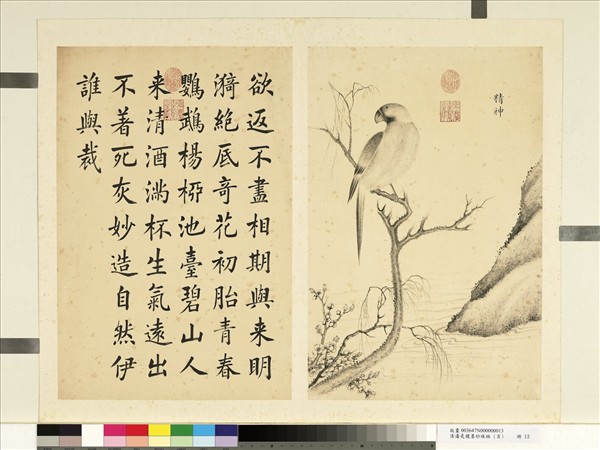 精神
欲返不盡相期與来明
漪絕底竒花初胎青春
鸚鵡楊桺池臺碧山人
来清酒滿杯生氣遠出
不著死灰妙造自然伊
誰與裁
故畫 003647N000000013
墨妙珠林（亥） 冊 13